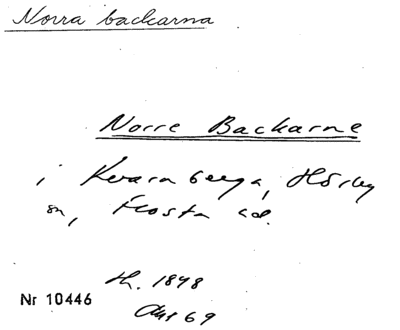 Norra backarna
Norre Backarne
i Kvarnberga, Hörby
sn, Frosta hd.
th. 1848
Nr 10446
Akt 69